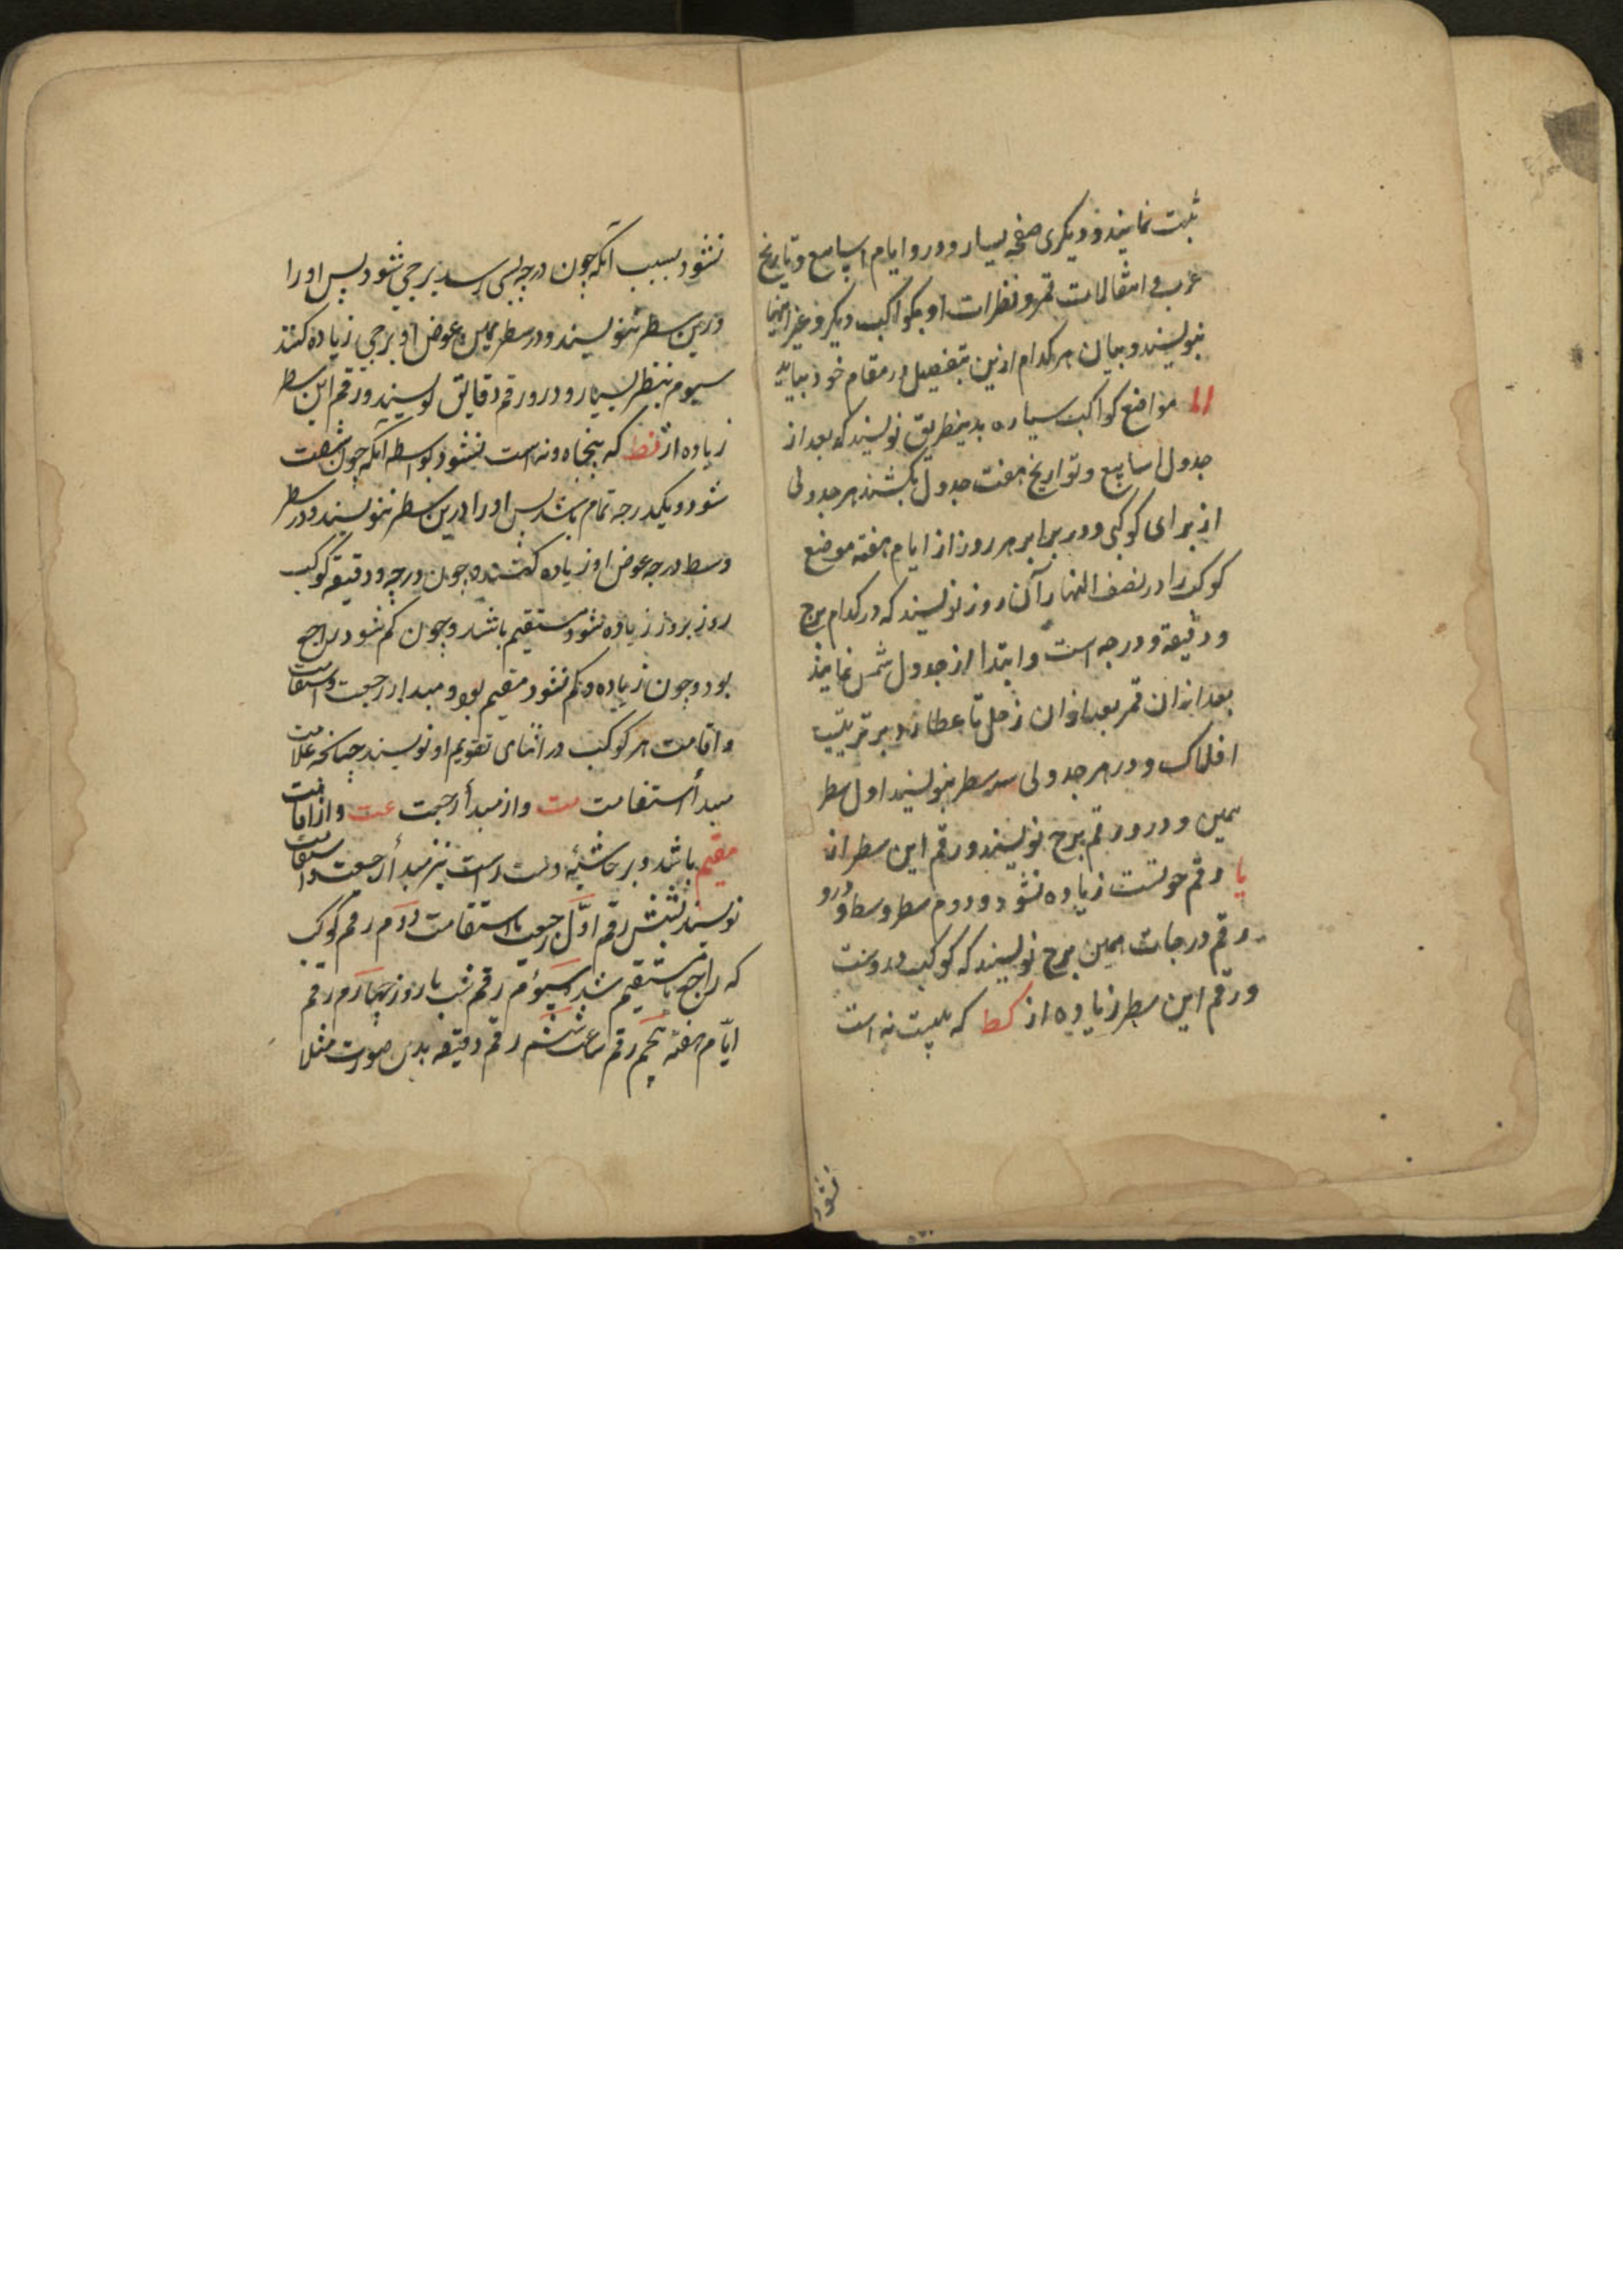 ثبت نمایند و دیکری صفحه یسار و درو ایام اسابیع و تاریخ
عرب و انتقالات قمر و نظرات او بکواکب دیکر و غیر اینها
بنویسند و بیان هر کدام ازین بتفصیل در مقام خود بیاید
اما مواضع کواکب سیاره بدینطریق نویسند که بعد از
جدول اسابیع و تواریخ هفت جدول بکشند هر جدولی
از برای کوکبی و در برابر هر روز از ایام هفته موضع
کوکب را در نصف النهار آن روز نویسند که در کدام برج
و دقیقه و درجه است و ابتدا از جدول شمس نمایند
بعد از ان قمر بعد از ان زحل تا عطارد بر ترتیب
افلاک و در هر جدولی سه سطر بنویسند اول سطر
یمین و درو رقم برج نویسند و رقم این سطر از
یا رقم حوتست زیاده نشود و دوم سطر وسط و درو
رقم درجات همین برج نویسند که کوکب دروست
و رقم این سطر زیاده از کط که بیست نه است
نشود
نشود بسبب آنکه چون درجه بسی رسد برجی شود پس او را
درین سطر ننویسند و در سطر یمین عوض او برجی زیاده کنند
سیوم سطر یسار و درو رقم دقایق نویسند و رقم این سطر
زیاده از نط که پنجاه و نه است نشود بواسطه آنکه چون شصت
شود و یکدرجه تمام باشد پس او را درین سطر ننویسند و در سطر
وسط درجه عوض او زیاده کنند و چون درجه و دقیقه کوکب
روز بروز زیاده شود مستقیم باشد و چون کم شود راجع
بود و چون زیاده و کم نشود مقیم بود و مبدا رجعت و استقامت
و اقامت هر کوکب در اثنای تقویم او نویسند چنانکه علامت
مبدأ استقامت مت و از مبدأ رجعت عت و از اقامت
مقیم باشد و بر حاشیه دست راست نیز مبدأ رجعت و استقامت
نویسند بشش رقم اوّل رجعت یا استقامت دوم رقم کوکب
که راجع یا مستقیم شد سیوم رقم شب یا روز چهارم رقم
ایّام هفته پنجم رقم ساعت ششم رقم دقیقه بدین صورت مثلا